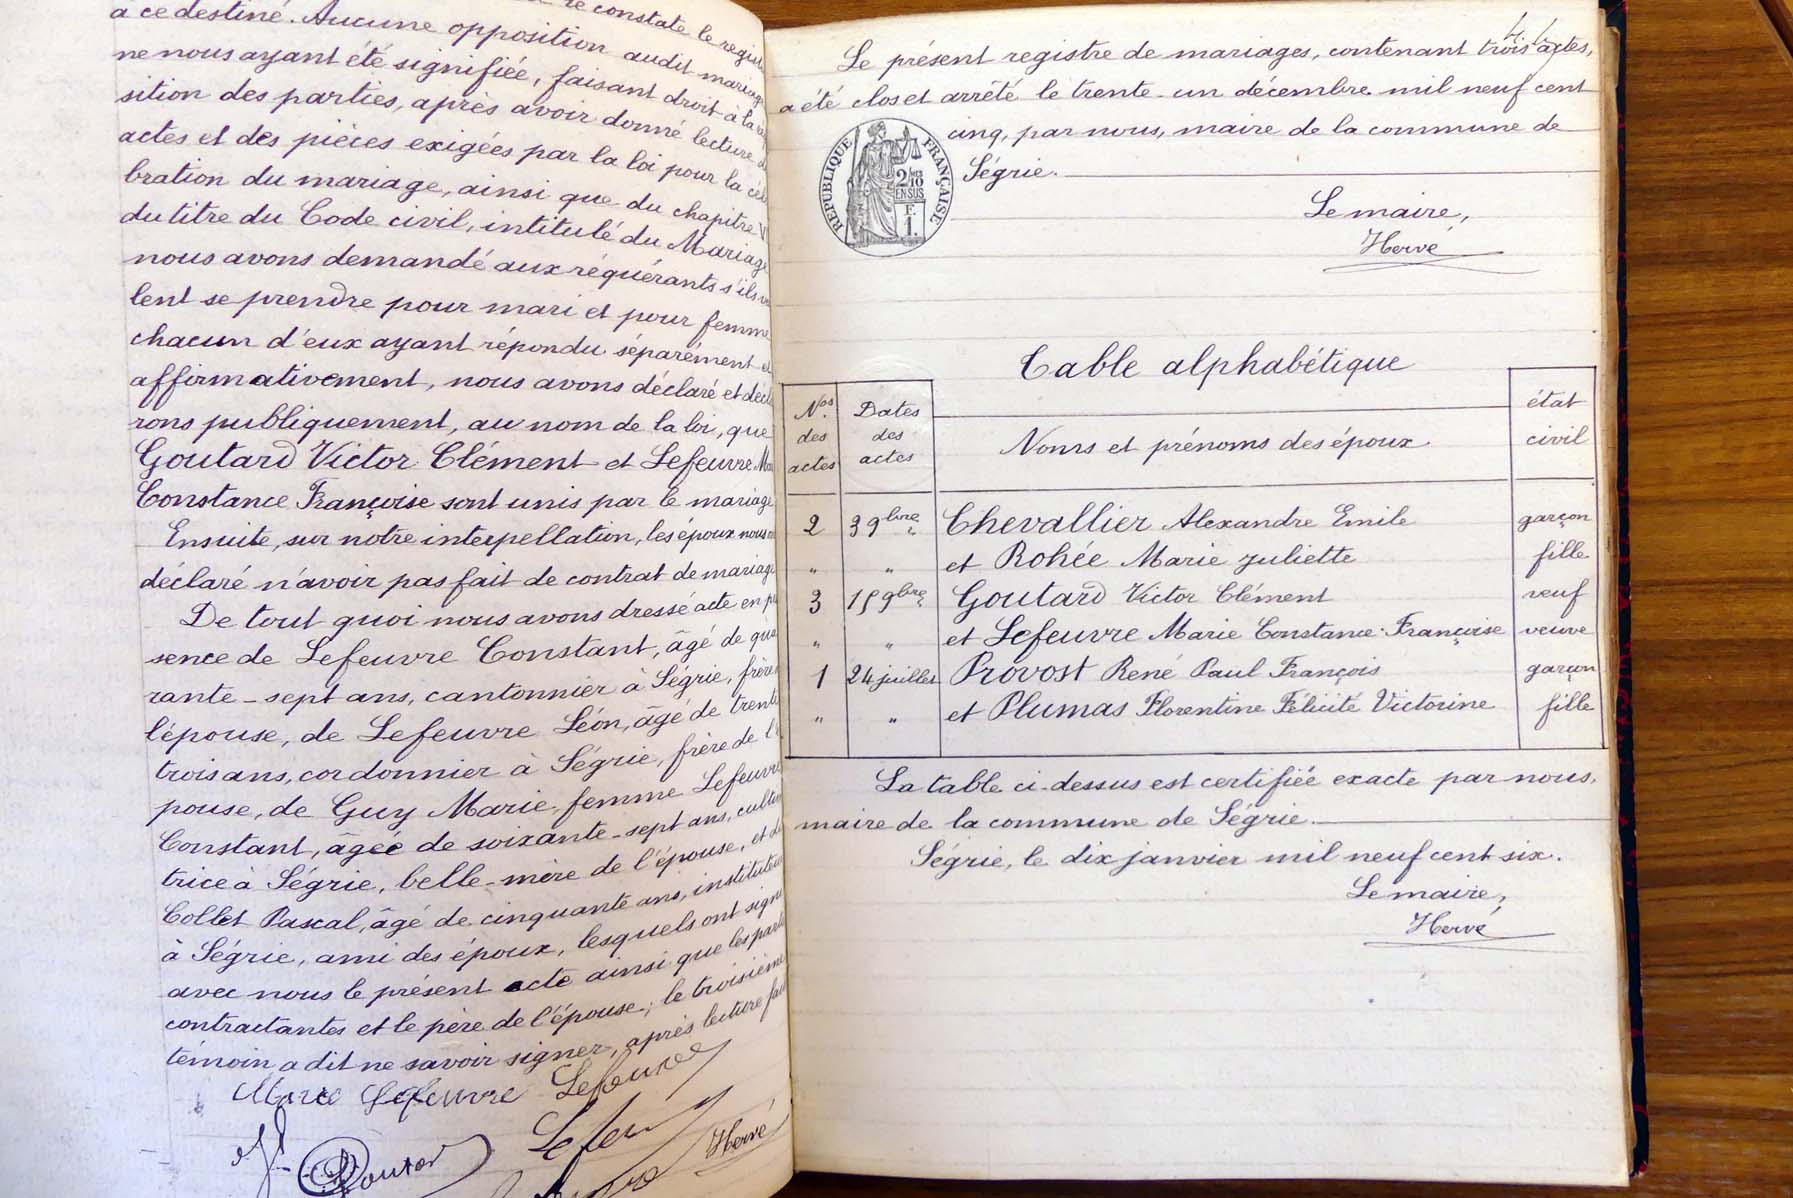 re constate le regis
à ce destiné. Aucune opposition audit mariage
ne nous ayant été signifiée, faisant droit à la
sition des parties, après avoir donné lecture d
actes et des pièces exigées par la loi pour la cél
bration du mariage, ainsi que du chapitre V
du titre du Code civil, intitulé du Mariage
nous avons demandé aux réquérants s'ils v
lent se prendre pour mari et pour femme
chacun d'eux ayant répondu séparément et
affirmativement, nous avons déclaré et décl
rons publiquement, au nom de la loi, que
Goutard Victor Clément et Lefeuvre Ma
Constance Françoise sont unis par le mariage
Ensuite, sur notre interpellation, les époux nous
déclaré n'avoir pas fait de contrat de mariage
De tout quoi nous avons dressé acte en p
sence de Lefeuvre Constant, âgé de qua
rante-sept ans, cantonnier à Ségrie, frère
l'épouse, de Lefeuvre Léon, âgé de trente
trois ans, cordonnier à Ségrie, frère de l'é
pouse, de Guy Marie, femme Lefeuvre
Constant, âgée de soixante-sept ans, cultiva
trice à Ségrie, belle-mère de l'épouse, et de
Collet Pascal, âgé de cinquante ans, instituteur
à Ségrie, ami des époux, lesquels ont signé
avec nous le présent acte ainsi que les parti
contractantes et le père de l'épouse; le troisième
témoin a dit ne savoir signer, après lecture fai
Marie Lefeuvre Lefeuvre
Goutard
Hervé
Le présent registre de mariages, contenant trois actes,
a été clos et arrêté le trente-un décembre mil neuf cent
cinq, par nous, maire de la commune de
Ségrie.
RÉPUBLIQUE FRANÇAISE
2/10
EN SUS
F.
1.
Le maire,
Hervé
Table alphabétique
Nos des actes
Dates des actes
Noms et prénoms des époux
état civil
2 3 9bre Chevallier Alexandre Emile garçon
" " et Rohée Marie Juliette fille
3 15 9bre Goutard Victor Clément veuf
" " et Lefeuvre Marie Constance Françoise veuve
1 24 juillet Provost René Paul François garçon
" " et Plumas Florentine Félicité Victorine fille
La table ci-dessus est certifiée exacte par nous,
maire de la commune de Ségrie.
Ségrie, le dix janvier mil neuf cent six.
Le maire,
Hervé